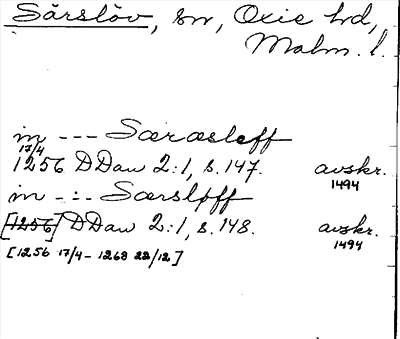 Särslöv, sn, Oxie hd,
Malm. l.
in --- Særæsleff
17/4
1256 DDan 2:1, s. 147. avskr.
1494
in -:- Særsløff
[1256] DDan 2:1, s. 148. avskr.
1494
[1256 17/4 - 1268 22/12]